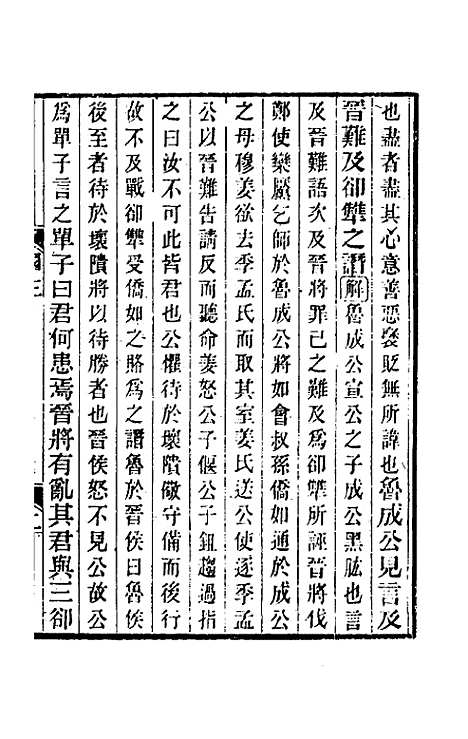 也盡者盡其心意善惡褒貶無所諱也魯成公見言及
晉難及郤犫之譖解魯成公宣公之子成公黑肱也言
及晉難語次及晉將罪己之難及爲郤犫所誣晉將伐
鄭使欒黶乞師於魯成公將如會叔孫僑如通於成公
之母穆姜欲去季孟氏而取其室姜氏送公使逐季孟
公以晉難告請反而聽命姜怒公子偃公子鉏趨過指
之曰汝不可此皆君也公懼待於壞隤儆守備而後行
故不及戰郤犫受僑如之賂爲之譖魯於晉侯曰魯侯
後至者待於壞隤將以待勝者也晉侯怒不見公故公
爲單子言之單子曰君何患焉晉將有亂其君與三郤